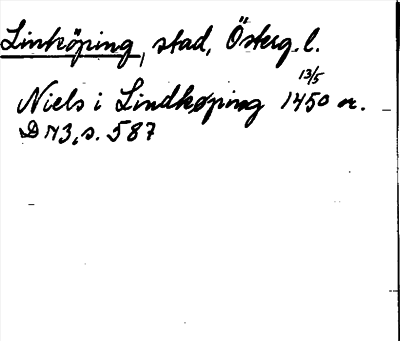 Linköping, stad, Österg. l.
Niels i Lindkøping 1450 13/5 or.
DN 3, s. 587